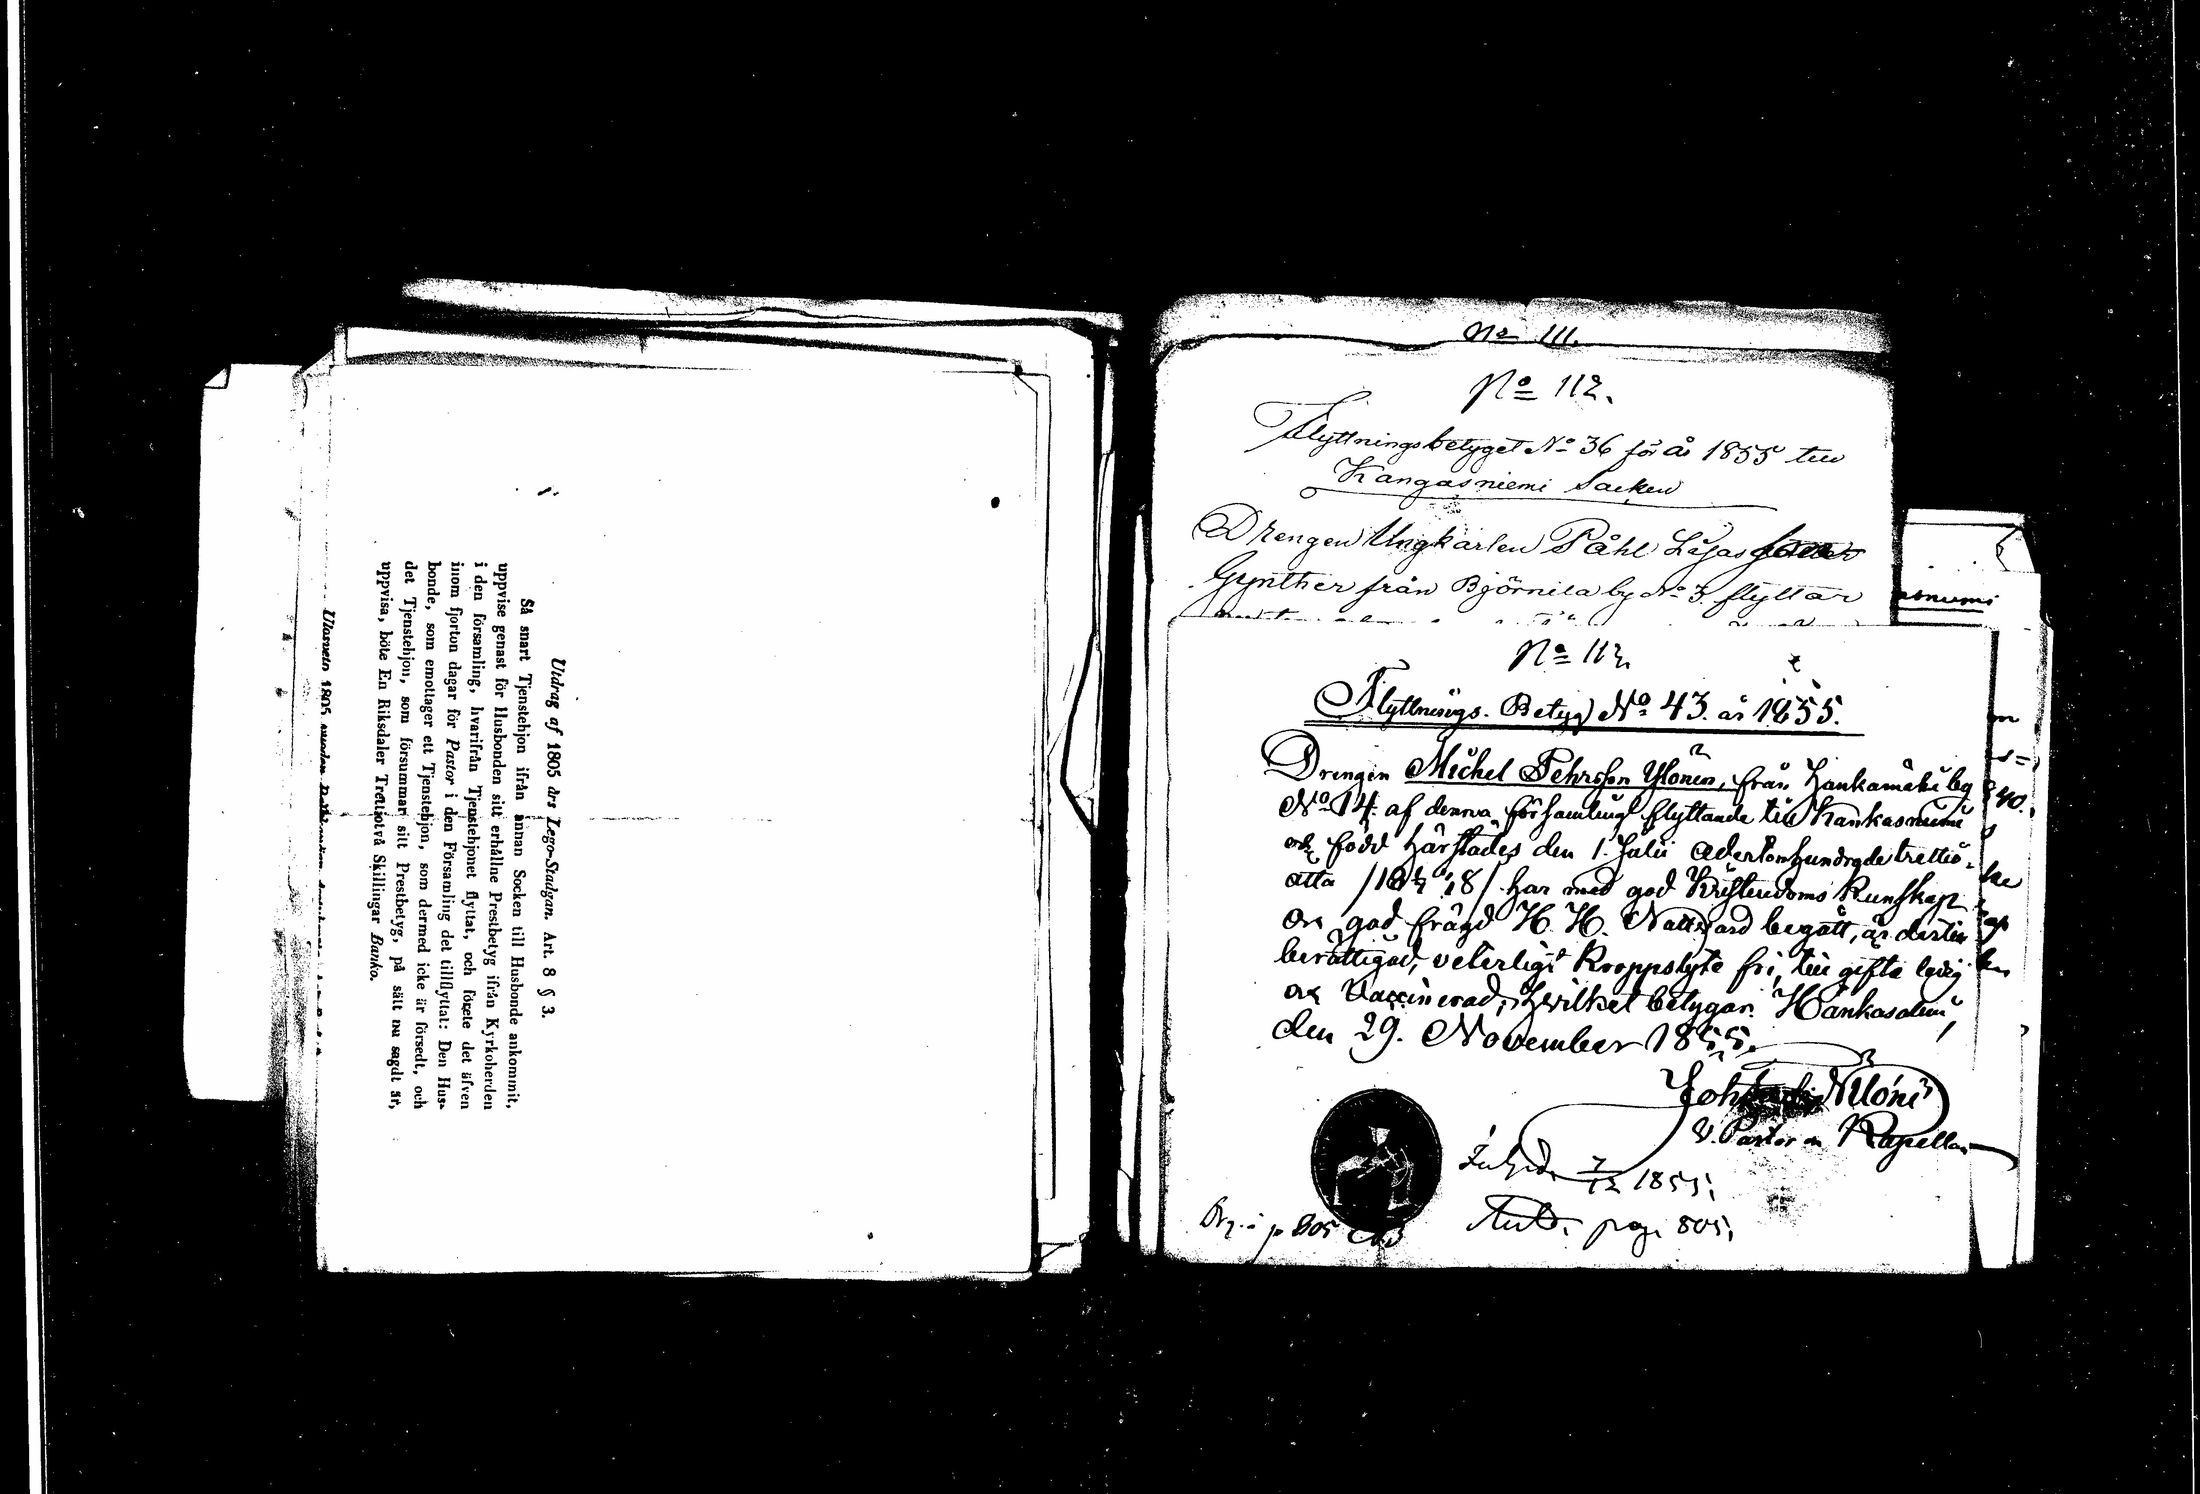 Utdrag af 1805 års Lego-Stadgan. Art. 8 § 3.
Så snart Tjenstehjon ifrån annan Socken till Husbonde ankommit,
uppvise genast för Husbonden sitt erhållne Prestbetyg ifrån Kyrkoherden
i den församling, hvarifrån Tjenstehjonet flyttat, och förete det äfven
inom fjorton dagar för Pastor i den Församling det tillflyttat: Den Hus-
bonde, som emottager ett Tjenstehjon, som dermed icke är försedt, och
det Tjenstehjon, som försummar sitt Prestbetyg, på sätt nu sagdt är,
uppvisa, böte En Riksdaler Trettiotvå Skillingar Banko.
No 111.
No 112.
Flyttningsbetyget No 36 för år 1855 till
Kangasniemi Socken
Drengen Ungkarlen Påhl
Gynther från Björnila by No 3. flyttar
No 113.
Flyttnings-Betyg No 43. år 1855.
Drengen Michel Pehrsson Ylönen, från Hankamäki by
No 14. af denna församling flyttande till Kankasniemi
och född härstädes den 1. Julii Adertonhundrade trettio-
åtta har med god Kristendoms Kunskap
och god frägd H. H. Nattvard begått, är dertill
berättigad, veterligt Kroppslyte fri, till gifte ledig
och Vaccinerad, Hvilket betygar. Hankasalmi,
den 29. November 1855.
V. Pastor Kapellan
7/12 1855.
pag. 805.
p 805